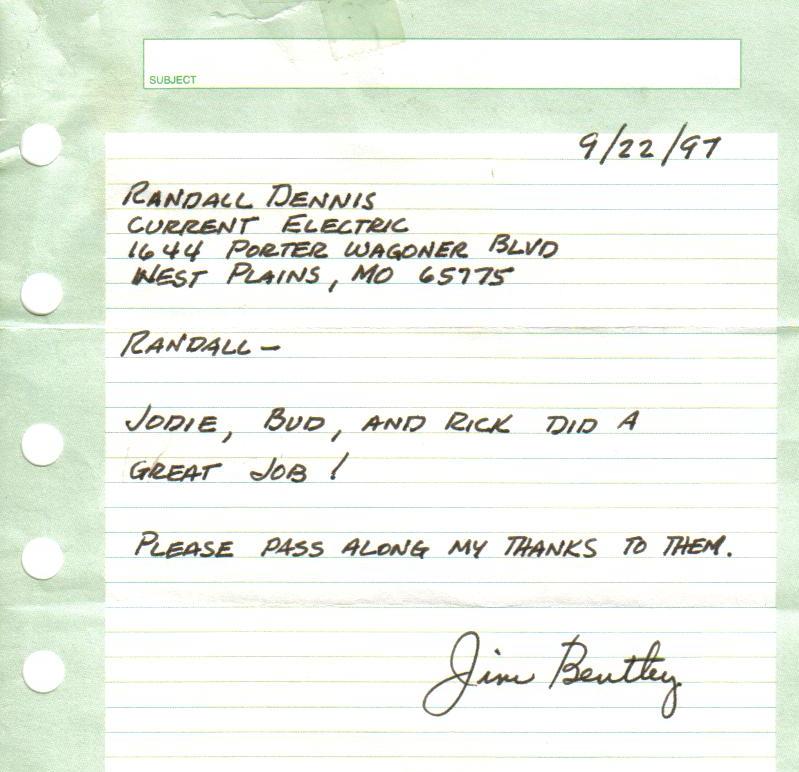 SUBJECT
9/22/97
RANDALL DENNIS
CURRENT ELECTRIC
1644 PORTER WAGONER BLVD
WEST PLAINS, MO 65775
RANDALL —
JODIE, BUD, AND RICK DID A
GREAT JOB!
PLEASE PASS ALONG MY THANKS TO THEM.
Jim Bentley